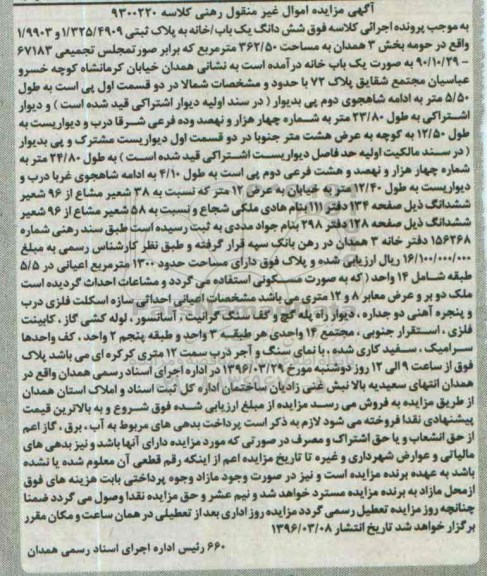 آگهی مزایده اموال غیر منقول رهنی کلاسه ۹۳۰۰۲۲۰
به موجب پرونده اجرائی کلاسه فوق شش دانگ یک باب/خانه به پلاک ثبتی ۱/۳۲۵/۴۹۰۹ و ۱/۹۹۰۳
واقع در حومه بخش ۳ همدان به مساحت ۳۶۲/۵۰ مترمربع که برابر صورتمجلس تجمیعی ۶۷۱۸۳
– ۹۰/۱۰/۲۹ به صورت یک باب خانه درآمده است به نشانی همدان خیابان کرمانشاه کوچه خسرو
عباسیان مجتمع شقایق پلاک ۷۳ با حدود و مشخصات شمالا در دو قسمت اول پی است به طول
۵/۵۰ متر به ادامه شاهجوی دوم پی بدیوار ( در سند اولیه دیوار اشتراکی قید شده است ) و دیوار
اشتراکی به طول ۲۳/۸۰ متر به شماره چهار هزار و نهصد وده فرعی شرقا درب و دیواریست به
طول ۱۲/۵۰ به کوچه به عرض هشت متر جنوبا در دو قسمت اول دیواریست مشترک و پی بدیوار
( در سند مالکیت اولیه حد فاصل دیواریست اشتراکی قید شده است ) به طول ۲۴/۸۰ متر به
شماره چهار هزار و نهصد و هشت فرعی دوم پی است به طول ۴/۱۰ به ادامه شاهجوی غربا درب و
دیواریست به طول ۱۲/۴۰ متر به خیابان به عرض ۱۲ متر که نسبت به ۳۸ شعیر مشاع از ۹۶ شعیر
ششدانگ ذیل صفحه ۱۳۴ دفتر ۱۱۱ بنام هادی ملکی شجاع و نسبت به ۵۸ شعیر مشاع از ۹۶ شعیر
ششدانگ ذیل صفحه ۱۳۸ دفتر ۲۹۸ بنام جواد مددی به ثبت رسیده است طبق سند رهنی شماره
۱۵۶۲۶۸ دفتر خانه ۳ همدان در رهن بانک سپه قرار گرفته و طبق نظر کارشناس رسمی به مبلغ
۱۶/۱۰۰/۰۰۰/۰۰۰ ریال ارزیابی شده و پلاک فوق دارای مساحت حدود ۱۳۰۰ مترمربع اعیانی در ۵/۵
طبقه شامل ۱۴ واحد ( که به صورت مسکونی استفاده می گردد و مشاعات احداث گردیده است
ملک دو بر و عرض معابر ۸ و ۱۲ متری می باشد مشخصات اعیانی احداثی سازه اسکلت فلزی درب
و پنجره آهنی دو جداره ، دیوار راه پله گچ و کف سنگ گرانیت ، آسانسور ، لوله کشی گاز ، کابینت
فلزی ، استقرار جنوبی ، مجتمع ۱۴ واحدی هر طبقه ۳ واحد و طبقه پنجم ۲ واحد ، کف واحدها
سرامیک ، سفید کاری شده ، با نمای سنگ و آجر درب سمت ۱۲ متری کرکره ای می باشد پلاک
فوق از ساعت ۹ الی ۱۲ روز دوشنبه مورخ ۱۳۹۶/۰۳/۲۹ در اداره اجرای اسناد رسمی همدان واقع در
همدان انتهای سعیدیه بالا نبش غنی زادیان ساختمان اداره کل ثبت اسناد و املاک استان همدان
از طریق مزایده به فروش می رسد مزایده از مبلغ ارزیابی شده فوق شروع و به بالاترین قیمت
پیشنهادی نقدا فروخته می شود لازم به ذکر است پرداخت بدهی های مربوط به آب ، برق ، گاز اعم
از حق انشعاب و یا حق اشتراک و مصرف در صورتی که مورد مزایده دارای آنها باشد و نیز بدهی های
مالیاتی و عوارض شهرداری و غیره تا تاریخ مزایده اعم از اینکه رقم قطعی آن معلوم شده یا نشده
باشد به عهده برنده مزایده است و نیز در صورت وجود مازاد وجوه پرداختی بابت هزینه های فوق
ازمحل مازاد به برنده مزایده مسترد خواهد شد و نیم عشر و حق مزایده نقدا وصول می گردد ضمنا
چنانچه روز مزایده تعطیل رسمی گردد مزایده روز اداری بعد از تعطیلی در همان ساعت و مکان مقرر
برگزار خواهد شد تاریخ انتشار ۱۳۹۶/۰۳/۰۸
۶۶۰ رئیس اداره اجرای اسناد رسمی همدان